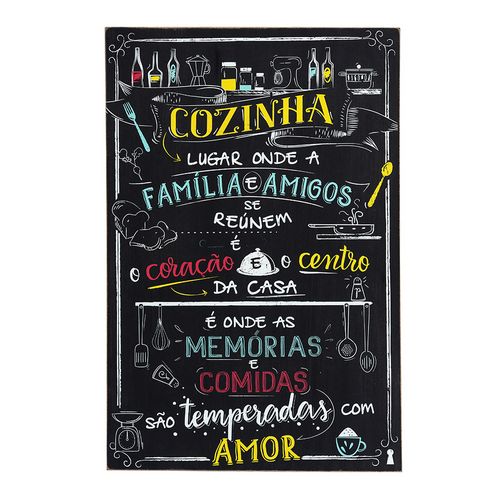 COZINHA
LUGAR ONDE A
FAMÍLIA E AMIGOS
SE
REÚNEM
É
O coração E O centro
DA CASA
É ONDE AS
MEMÓRIAS
E
COMIDAS
SÃO temperadas COM
AMOR